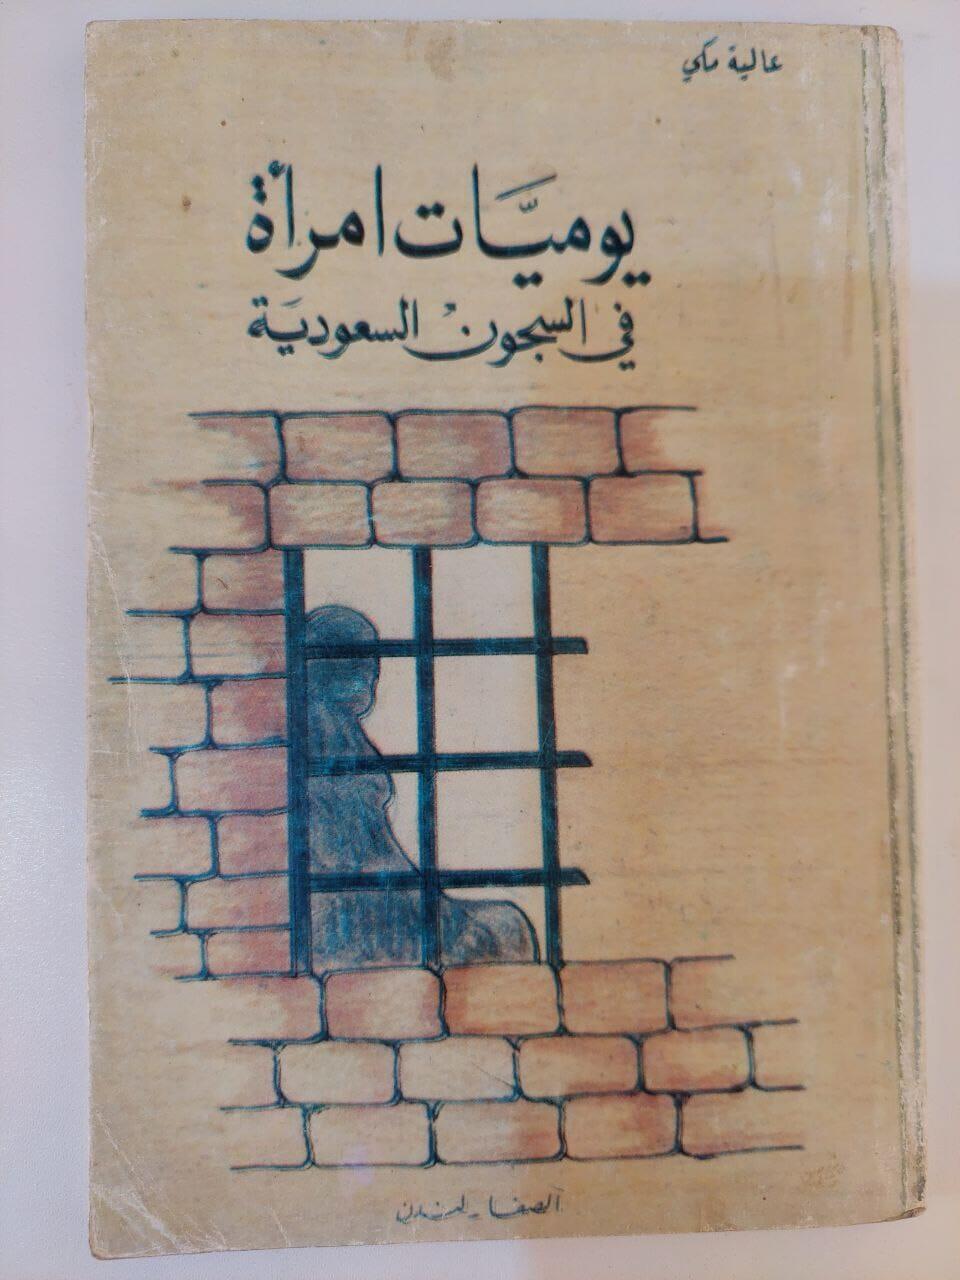 عالية مكي
يوميَّات امرأة
في السجونْ السعوديَة
الصفا - لندن